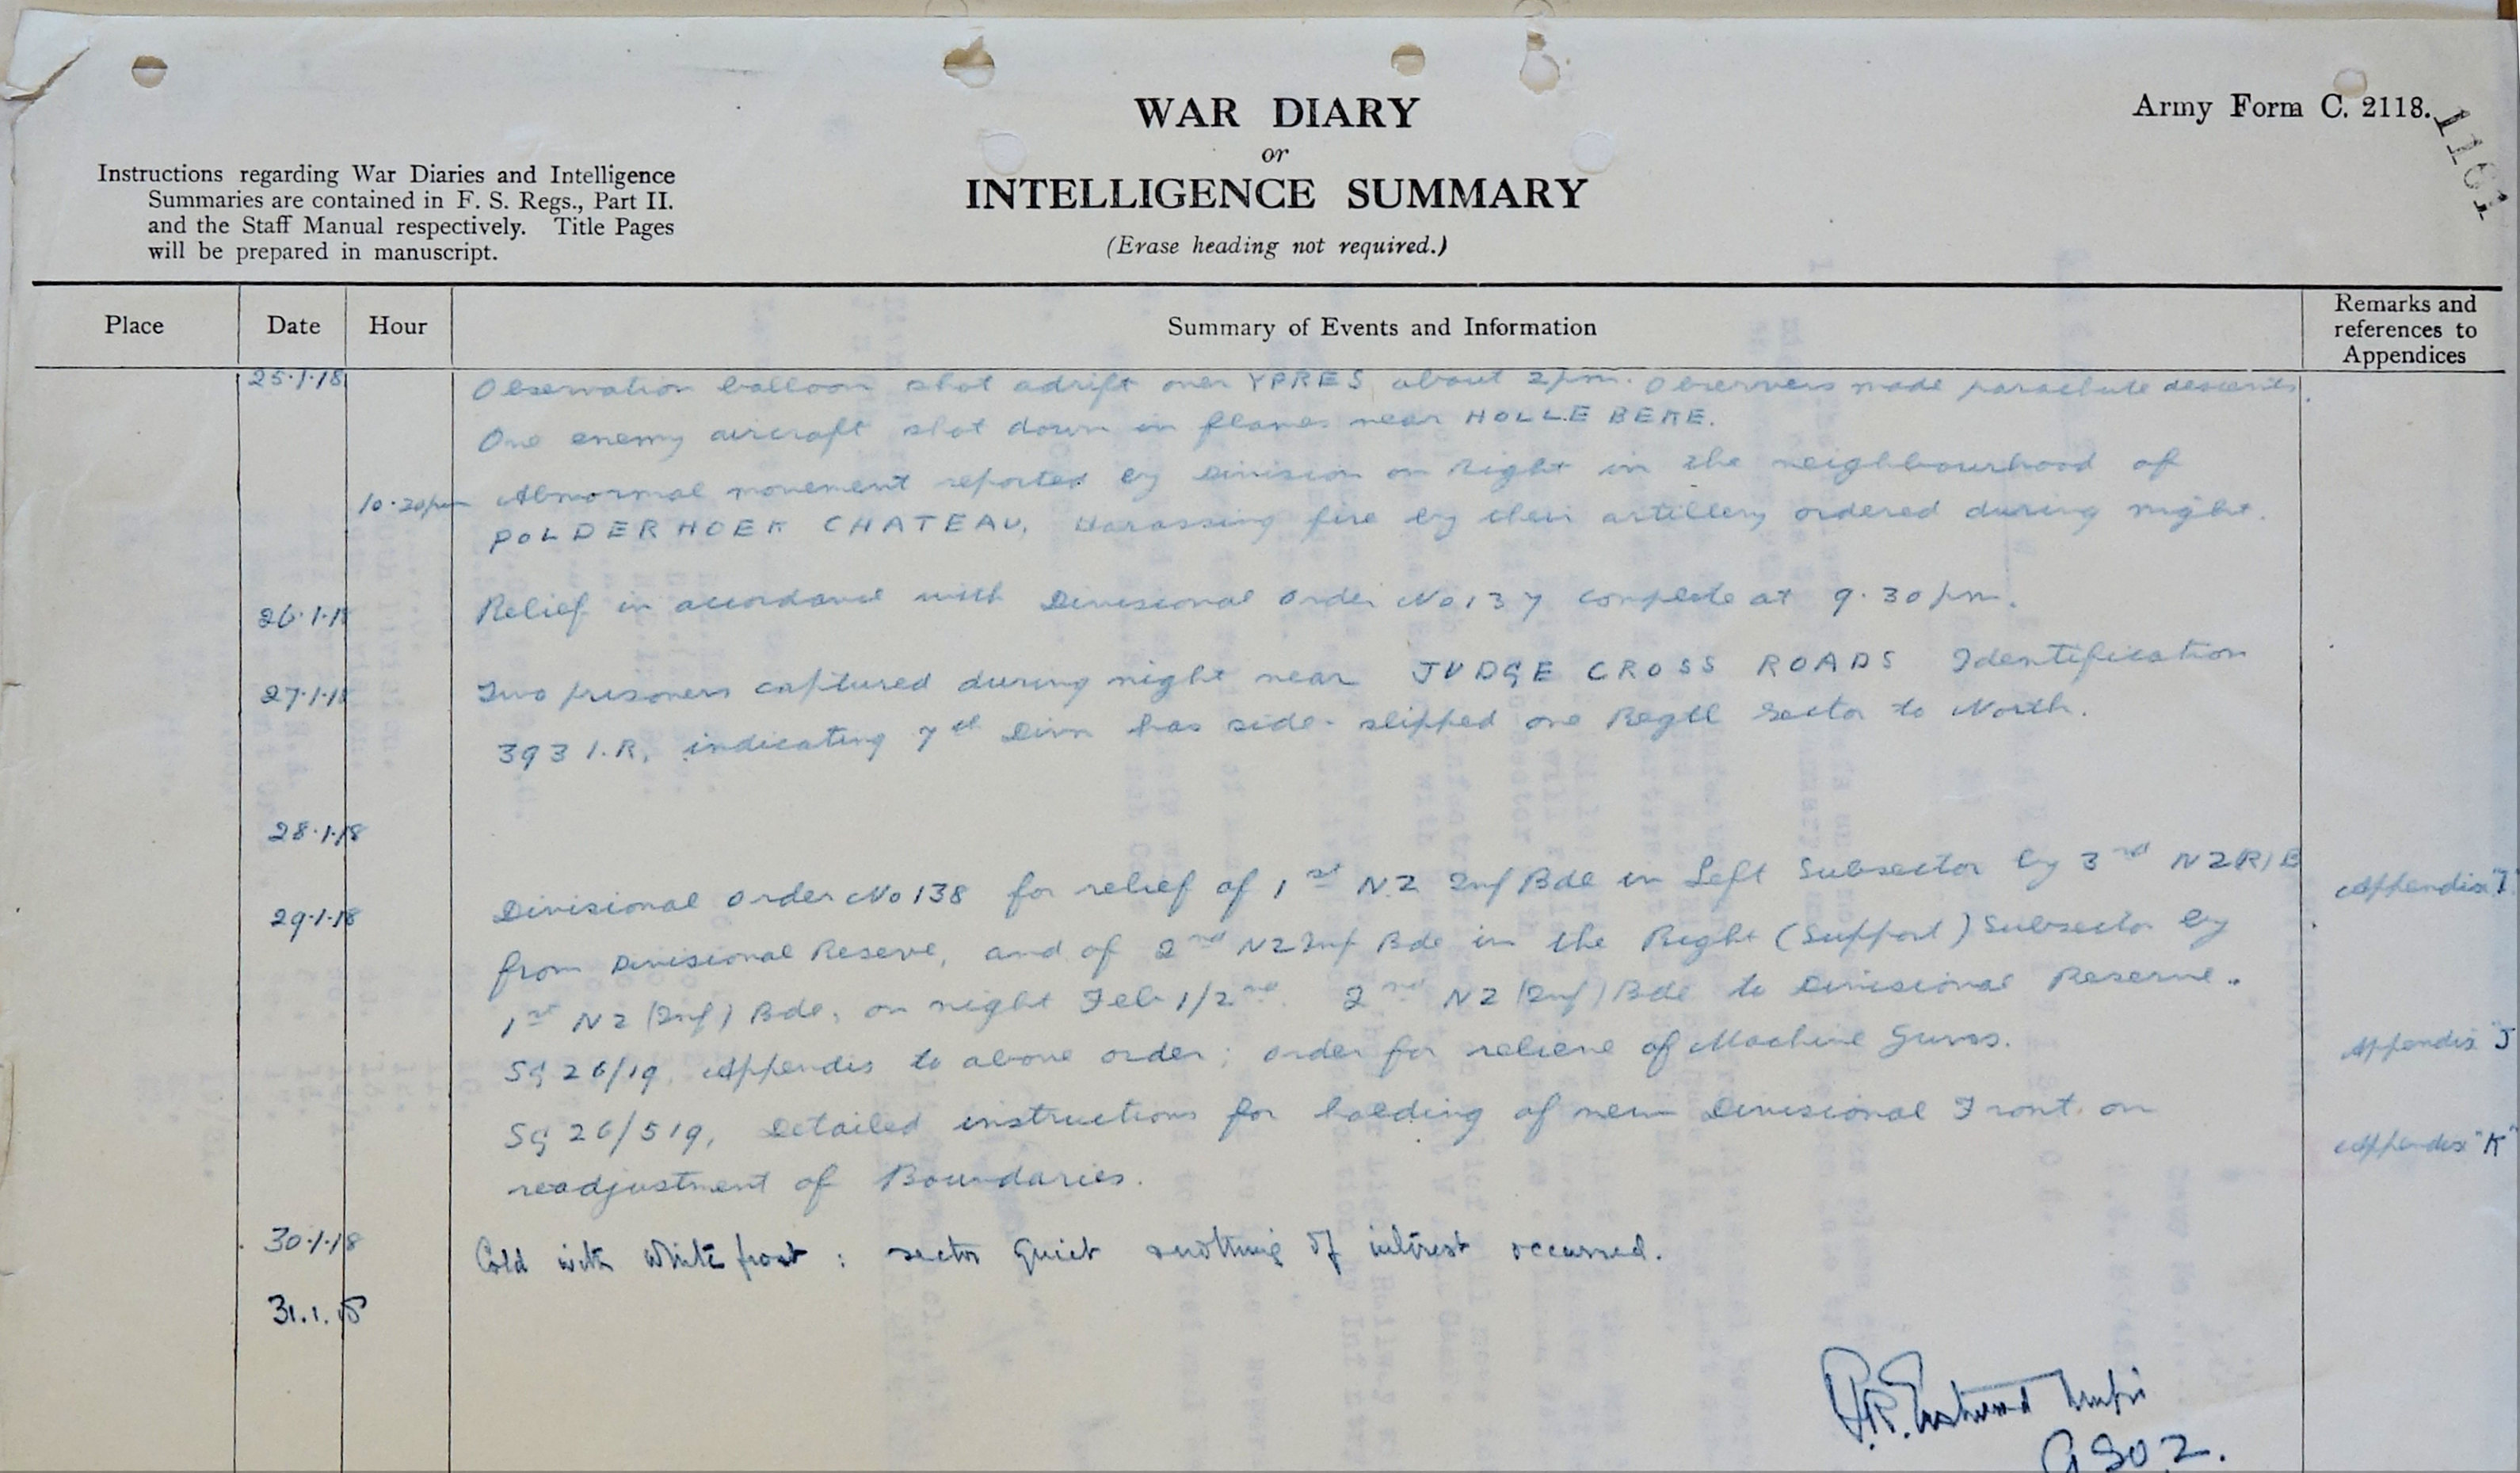 WAR DIARY
or
INTELLIGENCE SUMMARY
(Erase heading not required.)
Army Form C. 2118.
1161
Instructions regarding War Diaries and Intelligence
Summaries are contained in F. S. Regs., Part II.
and the Staff Manual respectively. Title Pages
will be prepared in manuscript.
Place Date Hour Summary of Events and Information Remarks and references to Appendices
25.1.18 Observation balloon shot adrift over YPRES about 2pm. Observers made parachute descents.
One enemy aircraft shot down in flames near HOLLEBEKE.
10.20pm Abnormal movement reported by Division on Right in the neighbourhood of
POLDERHOEK CHATEAU, Harassing fire by their artillery ordered during night.
26.1.18 Relief in accordance with Divisional Order No 137 complete at 9.30 pm.
27.1.18 Two prisoners captured during night near JUDGE CROSS ROADS Identification
393 I.R, indicating 7th Divn has side-slipped one Regtl sector to North.
28.1.18
29.1.18 Divisional Order No 138 for relief of 1st NZ Inf Bde in Left Subsector by 3rd NZ(R)B Appendix "I"
from Divisional Reserve, and of 2nd NZ Inf Bde in the Right (Support) Subsector by
1st NZ (Inf) Bde, on night Feb 1/2nd. 2nd NZ (Inf) Bde to Divisional Reserve.
SG 26/19, Appendix to above order; order for relieve of Machine Guns. Appendix "J
SG 26/519, Detailed instructions for holding of new Divisional Front on
readjustment of Boundaries. Appendix "K"
30.1.18 Cold with white frost : sector quiet & nothing of interest occurred.
31.1.18
Eastwood Major
GSO 2.